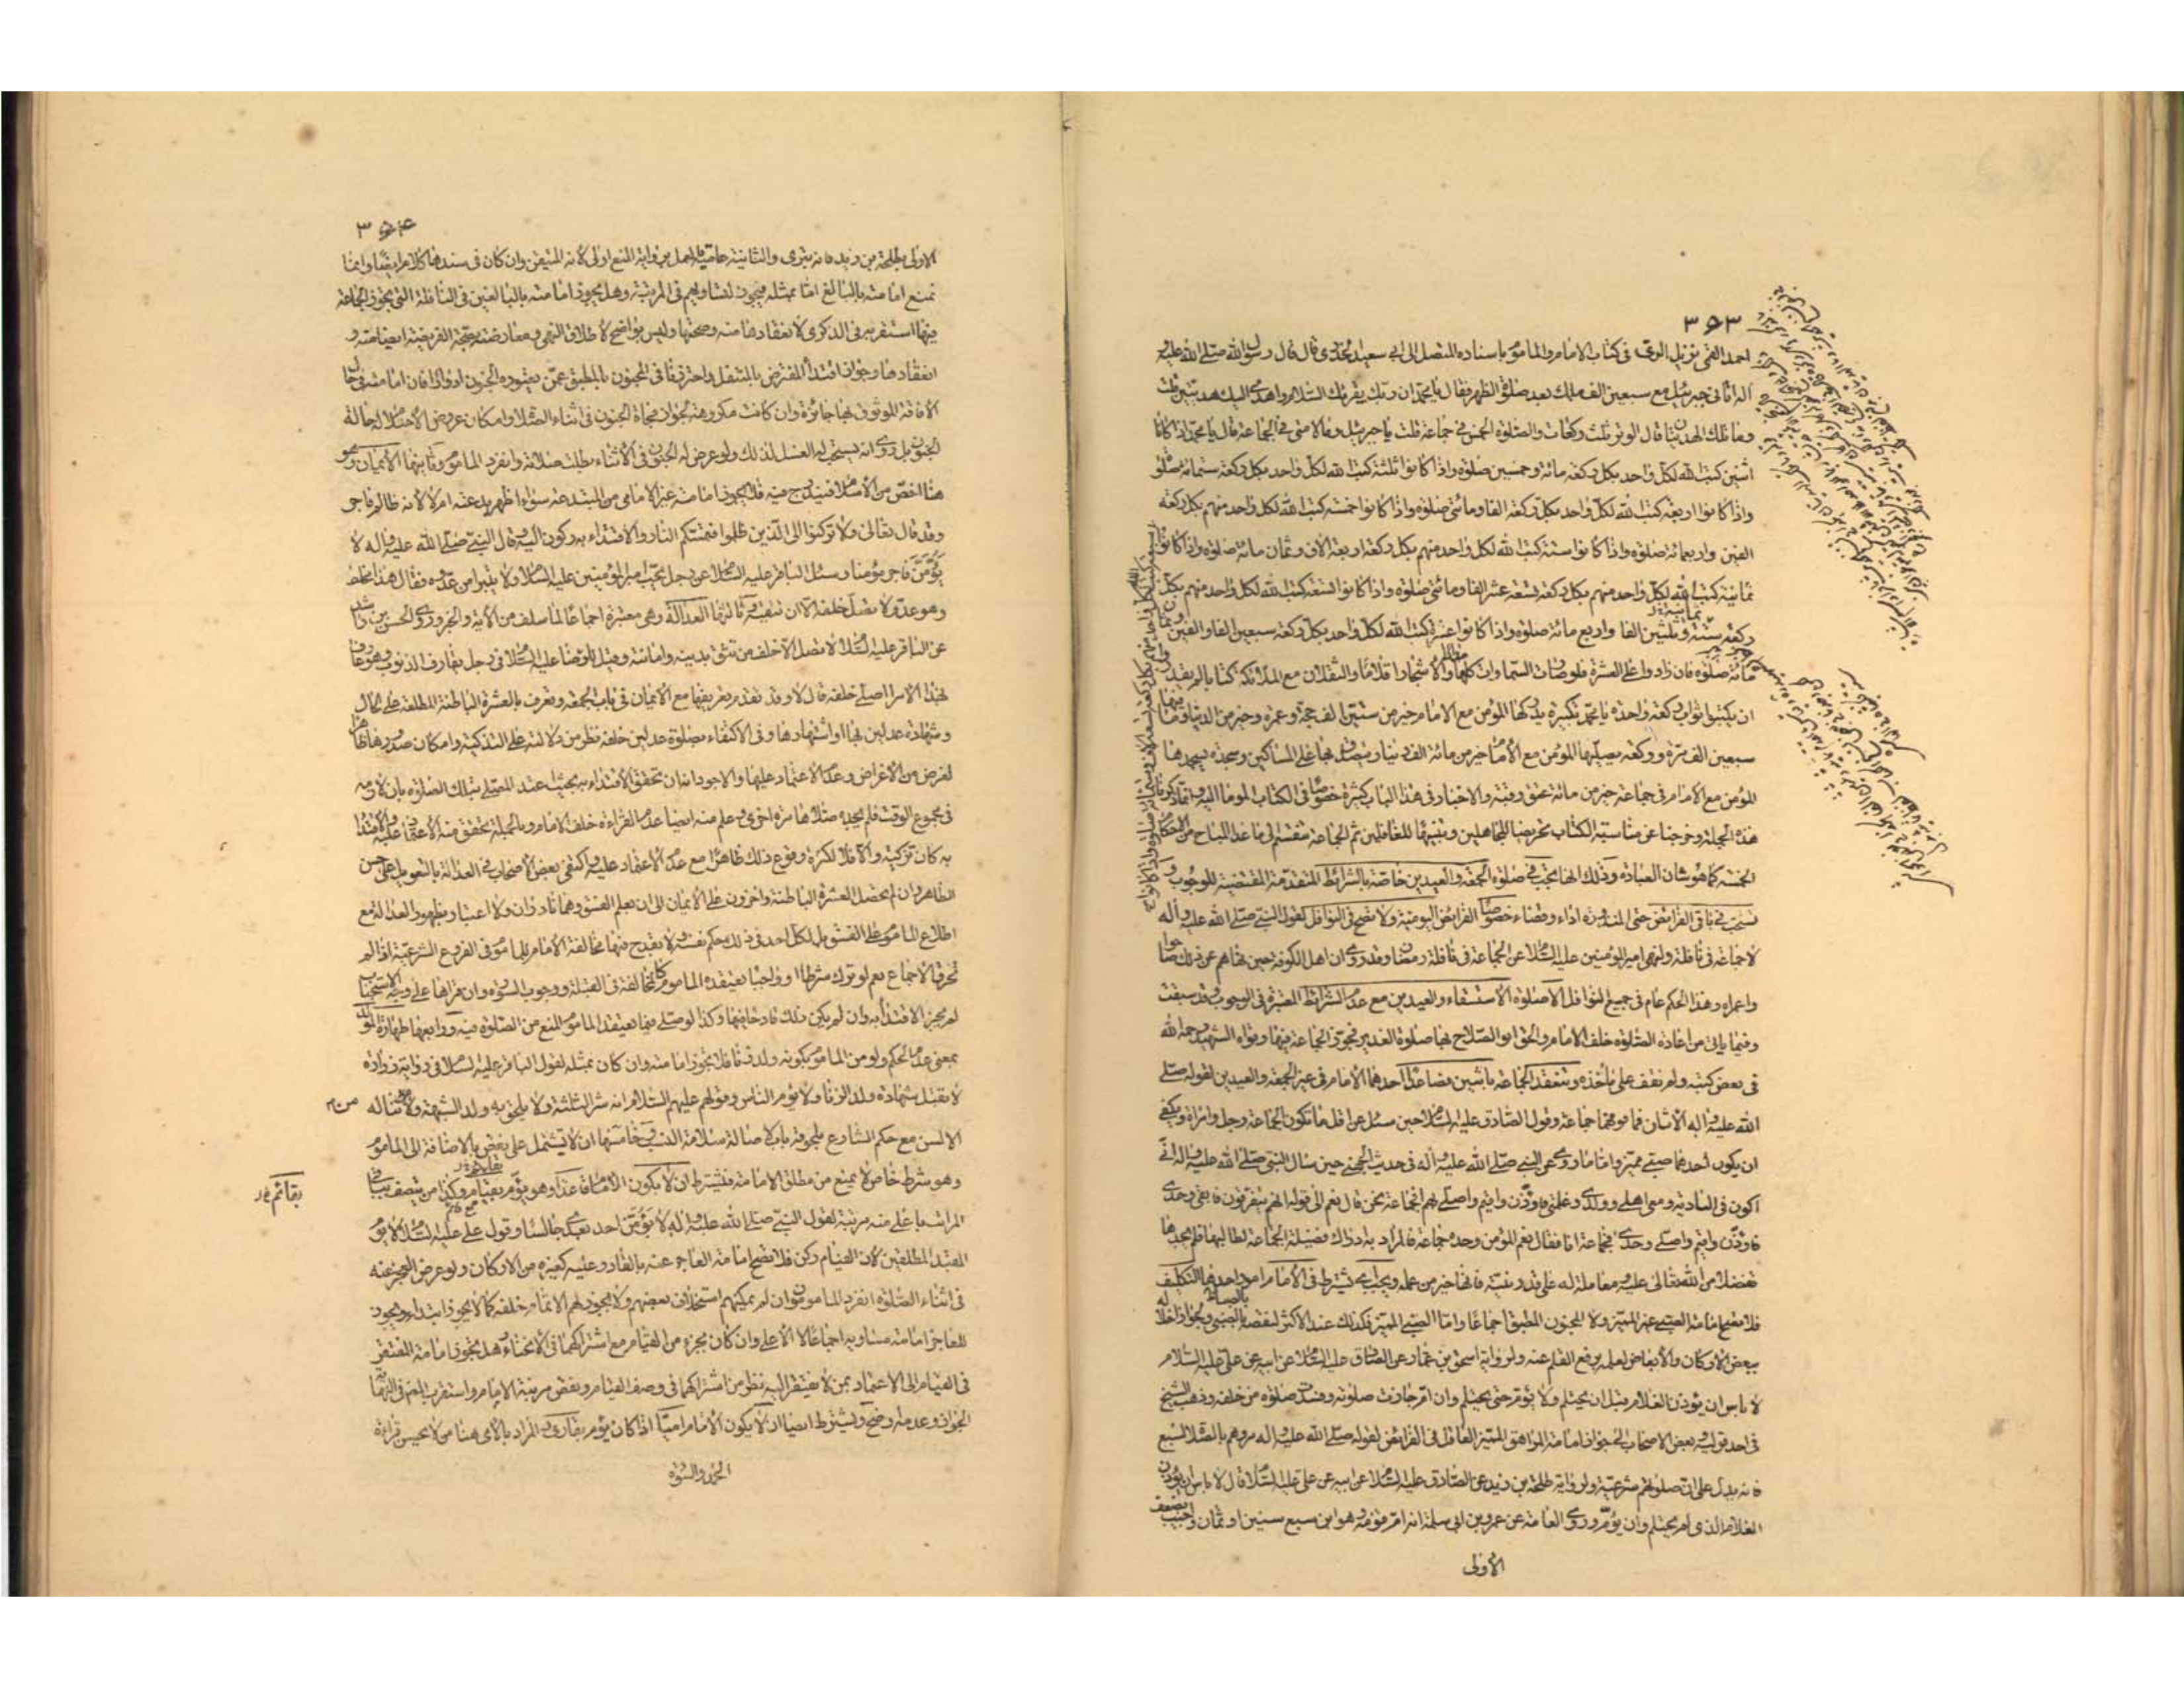 ٣٦٣
احمد القمي نزيل الري في كتاب الامام والمأموم باسناده المتصل الى ابي سعيد الخدري قال قال رسول الله صلى الله عليه
وآله اتاني جبرئيل مع سبعين الف ملك بعد صلوة الظهر فقال يا محمد ان ربك يقرئك السلام واهدى اليك هديتين قلت
وما تلك الهديتان قال الوتر ثلث ركعات والصلوة الخمس في جماعة قلت يا جبرئيل وما لامتي في الجماعة قال يا محمد اذا كانا
اثنين كتب الله لكل واحد بكل ركعة مائة وخمسين صلوة واذا كانوا ثلثة كتب الله لكل واحد بكل ركعة ستمائة صلوة
واذا كانوا اربعة كتب الله لكل واحد بكل ركعة الفا ومائتي صلوة واذا كانوا خمسة كتب الله لكل واحد منهم بكل ركعة
الفين واربعمائة صلوة واذا كانوا ستة كتب الله لكل واحد منهم بكل ركعة اربعة الاف وثمان مائة صلوة واذا كانوا
ثمانية كتب الله لكل واحد منهم بكل ركعة تسعة عشر الفا ومائتي صلوة واذا كانوا تسعة كتب الله لكل واحد منهم بكل
ركعة ستة وثلثين الفا واربع مائة صلوة واذا كانوا عشرة كتب الله لكل واحد بكل ركعة سبعين الفا والفين وثمان
مائة صلوة فان زادوا على العشرة فلو صارت السماوات كلها والاشجار اقلاما والثقلان مع الملائكة كتابا لم يقدروا
ان يكتبوا ثواب ركعة واحدة يا محمد تكبيرة يدركها المؤمن مع الامام خير من ستين الف حجة وعمرة وخير من الدنيا وما فيها
سبعين الف مرة وركعة يصليها المؤمن مع الامام خير من مائة الف دينار يتصدق بها على المساكين وسجدة يسجدها
المؤمن مع الامام في جماعة خير من مائة عتق رقبة والاخبار في هذا الباب كثيرة خصوصا في الكتاب الموما اليه وانما ذكرنا
هذه الجملة وخرجنا عن مناسبة الكتاب تحريضا للجاهلين وتنبيها للغافلين ثم الجماعة تنقسم الى ما عدا المباح من الاحكام
الخمسة كما هو شان العبادة وذلك انها تجب في صلوة الجمعة والعيدين خاصة بالشرائط المتقدمة المقتضية للوجوب و
تستحب في باقي الفرائض حتى المنذورة اداء وقضاء خصوصا الفرائض اليومية ولا تصح في النوافل لقول النبي صلى الله عليه وآله
لا جماعة في نافلة ولنهي امير المؤمنين عليه السلام عن الجماعة في نافلة رمضان وقد روى ان اهل الكوفة حين نهاهم عن ذلك صاحوا
واعمراه وهذا الحكم عام في جميع النوافل الا صلوة الاستسقاء والعيدين مع عدم الشرائط المعتبرة في الوجوب وقد سبقت
وفيما ياتي من اعادة الصلوة خلف الامام والحق ابو الصلاح بها صلوة الغدير فجوز الجماعة فيها ورواه الشهيد رحمه الله
في بعض كتبه ولم نقف على مأخذه وتنعقد الجماعة باثنين فصاعدا احدهما الامام في غير الجمعة والعيدين لقوله صلى
الله عليه وآله الاثنان فما فوقهما جماعة وقول الصادق عليه السلام حين سئل عن اقل ما تكون الجماعة رجل وامرأة ويكفي
ان يكون احدهما صبي مميز واما ما روى عن النبي صلى الله عليه وآله في حديث الجهني حين سأل النبي صلى الله عليه وآله اني
اكون في البادية ومعي اهلي وولدي وغلمتي فاؤذن واقيم واصلي بهم افجماعة نحن قال نعم الى قوله انهم يتفرقون فابقى وحدي
فاؤذن واقيم واصلي وحدي افجماعة انا فقال نعم المؤمن وحده جماعة فالمراد به ادراك فضيلة الجماعة لطالبها فلم يجدها
تفضلا من الله تعالى عليه ومعاملة له على قدر نيته فانها خير من عمله ويجب يشترط في الامام امور احدها التكليف
فلا تصح امامة الصبي غير المميز ولا المجنون المطبق اجماعا واما الصبي المميز فكذلك عند الاكثر لنقصه بالصبي وبجواز اخلاله
ببعض الاركان والابعاض لعلمه برفع القلم عنه ولرواية اسحق بن عمار عن الصادق عليه السلام عن ابيه عن علي عليه السلام
لا بأس ان يؤذن الغلام قبل ان يحتلم ولا يؤم حتى يحتلم وان ام جازت صلوته وفسدت صلوة من خلفه وذهب الشيخ
في احد قوليه وبعض الاصحاب الى جواز امامة المراهق المميز العاقل في الفرائض لقوله صلى الله عليه وآله مروهم بالصلاة لسبع
فانه يدل على ان صلوتهم شرعية ولرواية طلحة بن زيد عن الصادق عليه السلام عن ابيه عن علي عليه السلام قال لا بأس ان يؤذن
الغلام الذي لم يحتلم وان يؤم وروى العامة عن عمرو بن ابي سلمة انه ام قومه وهو ابن سبع سنين او ثمان واجيب بضعف
الاولى
٣٦٤
الاولى بطلحة بن زيد فانه بتري والثانية عامية فالعمل برواية المنع اولى لانه المتيقن وان كان في سندها كلام ايضا وانما
تمنع امامته بالبالغ اما بمثله فيجوز لتساويهم في المرتبة وهل يجوز امامته بالبالغين في النافلة التي يجوز الجماعة
فيها استقربه في الذكرى لانعقادها منه وصحتها وليس بواضح لاطلاق النهي ومعارضته بصحة الفريضة ايضا منه و
انعقادها وجواز اقتداء المفترض بالمتنفل واحترزنا في المجنون بالمطبق عمن يعتوره الجنون ادوارا فان امامته في حال
الافاقة الموثوق بها جائزة وان كانت مكروهة لجواز مفاجاة الجنون في اثناء الصلاة وامكان عروض الاحتلام له حالة
الجنون بل روى انه يستحب له الغسل لذلك ولو عرض له الجنون في الاثناء بطلت صلاته وانفرد المأموم وثانيها الايمان وهو
هنا اخص من الاسلام فيندرج فيه فلا يجوز امامة غير الامامي من المبتدعة سواء اظهر بدعته ام لا لانه ظالم فاجر
وقد قال تعالى ولا تركنوا الى الذين ظلموا فتمسكم النار والاقتداء به ركون اليه وقال النبي صلى الله عليه وآله لا
يؤمن فاجر مؤمنا وسئل الباقر عليه السلام عن رجل يحب امير المؤمنين عليه السلام ولا يتبرأ من عدوه فقال هذا مخلط
وهو عدو لا تصل خلفه الا ان تتقيه وثالثها العدالة وهي معتبرة اجماعا لما سلف من الآية والخبر وروى الحسن بن راشد
عن الباقر عليه السلام لا تصل الا خلف من تثق بدينه وامانته وقيل للرضا عليه السلام في رجل يقارف الذنوب وهو عارف
بهذا الامر اصلي خلفه قال لا وقد تقدم تعريفها مع الايمان في باب الجمعة وتعرف بالعشرة الباطنة المطلعة على الحال
وشهادة عدلين بها او اشتهارها وفي الاكتفاء بصلوة عدلين خلفه نظر من دلالته على التزكية وامكان صدورها ظاهرا
لغرض من الاغراض وعدم الاعتماد عليها والاجود انه ان تحقق الاقتداء به بحيث عند المصلي بتلك الصلوة بان لازمه
في مجموع الوقت فلم يجده صلاها مرة اخرى وعلم منه ايضا عدم القراءة خلف الامام وبالجملة تحقق منه الاعتماد عليه والاقتداء
به كان تزكية والا فلا لكثرة وقوع ذلك ظاهرا مع عدم الاعتماد عليه واكتفى بعض الاصحاب في العدالة بالتعويل على حسن
الظاهر وان لم يحصل العشرة الباطنة واخرون على الايمان الى ان يعلم الفسق وهما نادران ولا اعتبار بظهور العدالة مع
اطلاع المأموم على الفسق بل لكل احد في ذلك حكم نفسه ولا يقدح فيها مخالفة الامام للمأموم في الفروع الشرعية اذا لم
تخرق الاجماع نعم لو ترك شرطا او واجبا يعتقده المأموم كالمخالفة في القبلة ووجوب السورة وان قرأها على وجه الاستحباب
لم يجز الاقتداء به وان لم يكن ذلك قادحا فيها وكذا لو صلى فيما يعتقد المأموم المنع من الصلوة فيه ورابعها طهارة المولد
بمعنى عدم الحكم ولو من المأموم بكونه ولد زنا فلا يجوز امامته وان كان بمثله لقول الباقر عليه السلام في رواية زرارة
لا تقبل شهادة ولد الزنا ولا يؤم الناس وقولهم عليهم السلام انه شر الثلثة ولا يلحق به ولد الشبهة ولا من تناله
الالسن مع حكم الشارع بلحوقه باب لاصالة سلامة النسب وخامسها ان لا يشتمل على نقص بالاضافة الى المأموم
وهو شرط خاص لا يمنع من مطلق الامامة فيشترط ان لا يكون الامام قاعدا وهو يؤم بقيام وكذا من يتصف بباقي
بقائم
المراتب باعلى منه مرتبة لقول النبي صلى الله عليه وآله لا يؤمن احد بعدي جالسا وقول علي عليه السلام لا يؤم
المقيد المطلقين لان القيام ركن فلا تصح امامة العاجز عنه بالقادر عليه كغيره من الاركان ولو عرض العجز عنه
في اثناء الصلوة انفرد المأمومون ان لم يمكنهم استخلاف بعضهم ولا يجوز لهم الائتمام خلفه كما لا يجوز ابتداء ويجوز
للعاجز امامة مساويه اجماعا لا الاعلى وان كان بجزء من القيام مع اشتراكهما في الانحناء وهل يجوز امامة المفتقر
في القيام الى الاعتماد بمن لا يفتقر اليه نظر من اشتراكهما في وصف القيام ونقص مرتبة الامام واستقرب المص في النهاية
الجواز وعدمه اوضح ويشترط ايضا ان لا يكون الامام اميا اذا كان يؤم بقارئ والمراد بالامي هنا من لا يحسن قراءة
الحمد والسورة